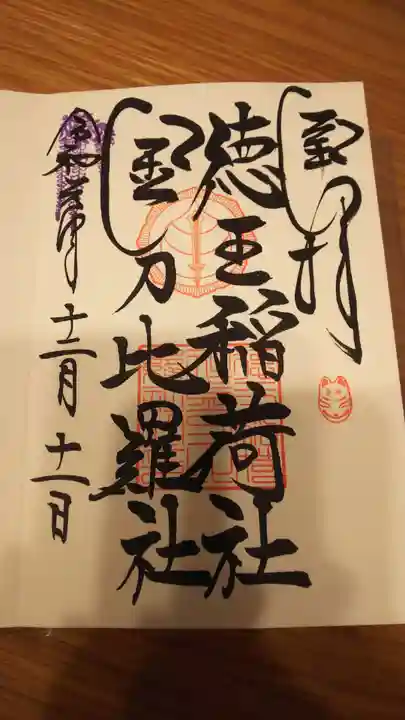 奉拝
徳王稲荷社
金刀比羅社
令和元年
十二月十一日